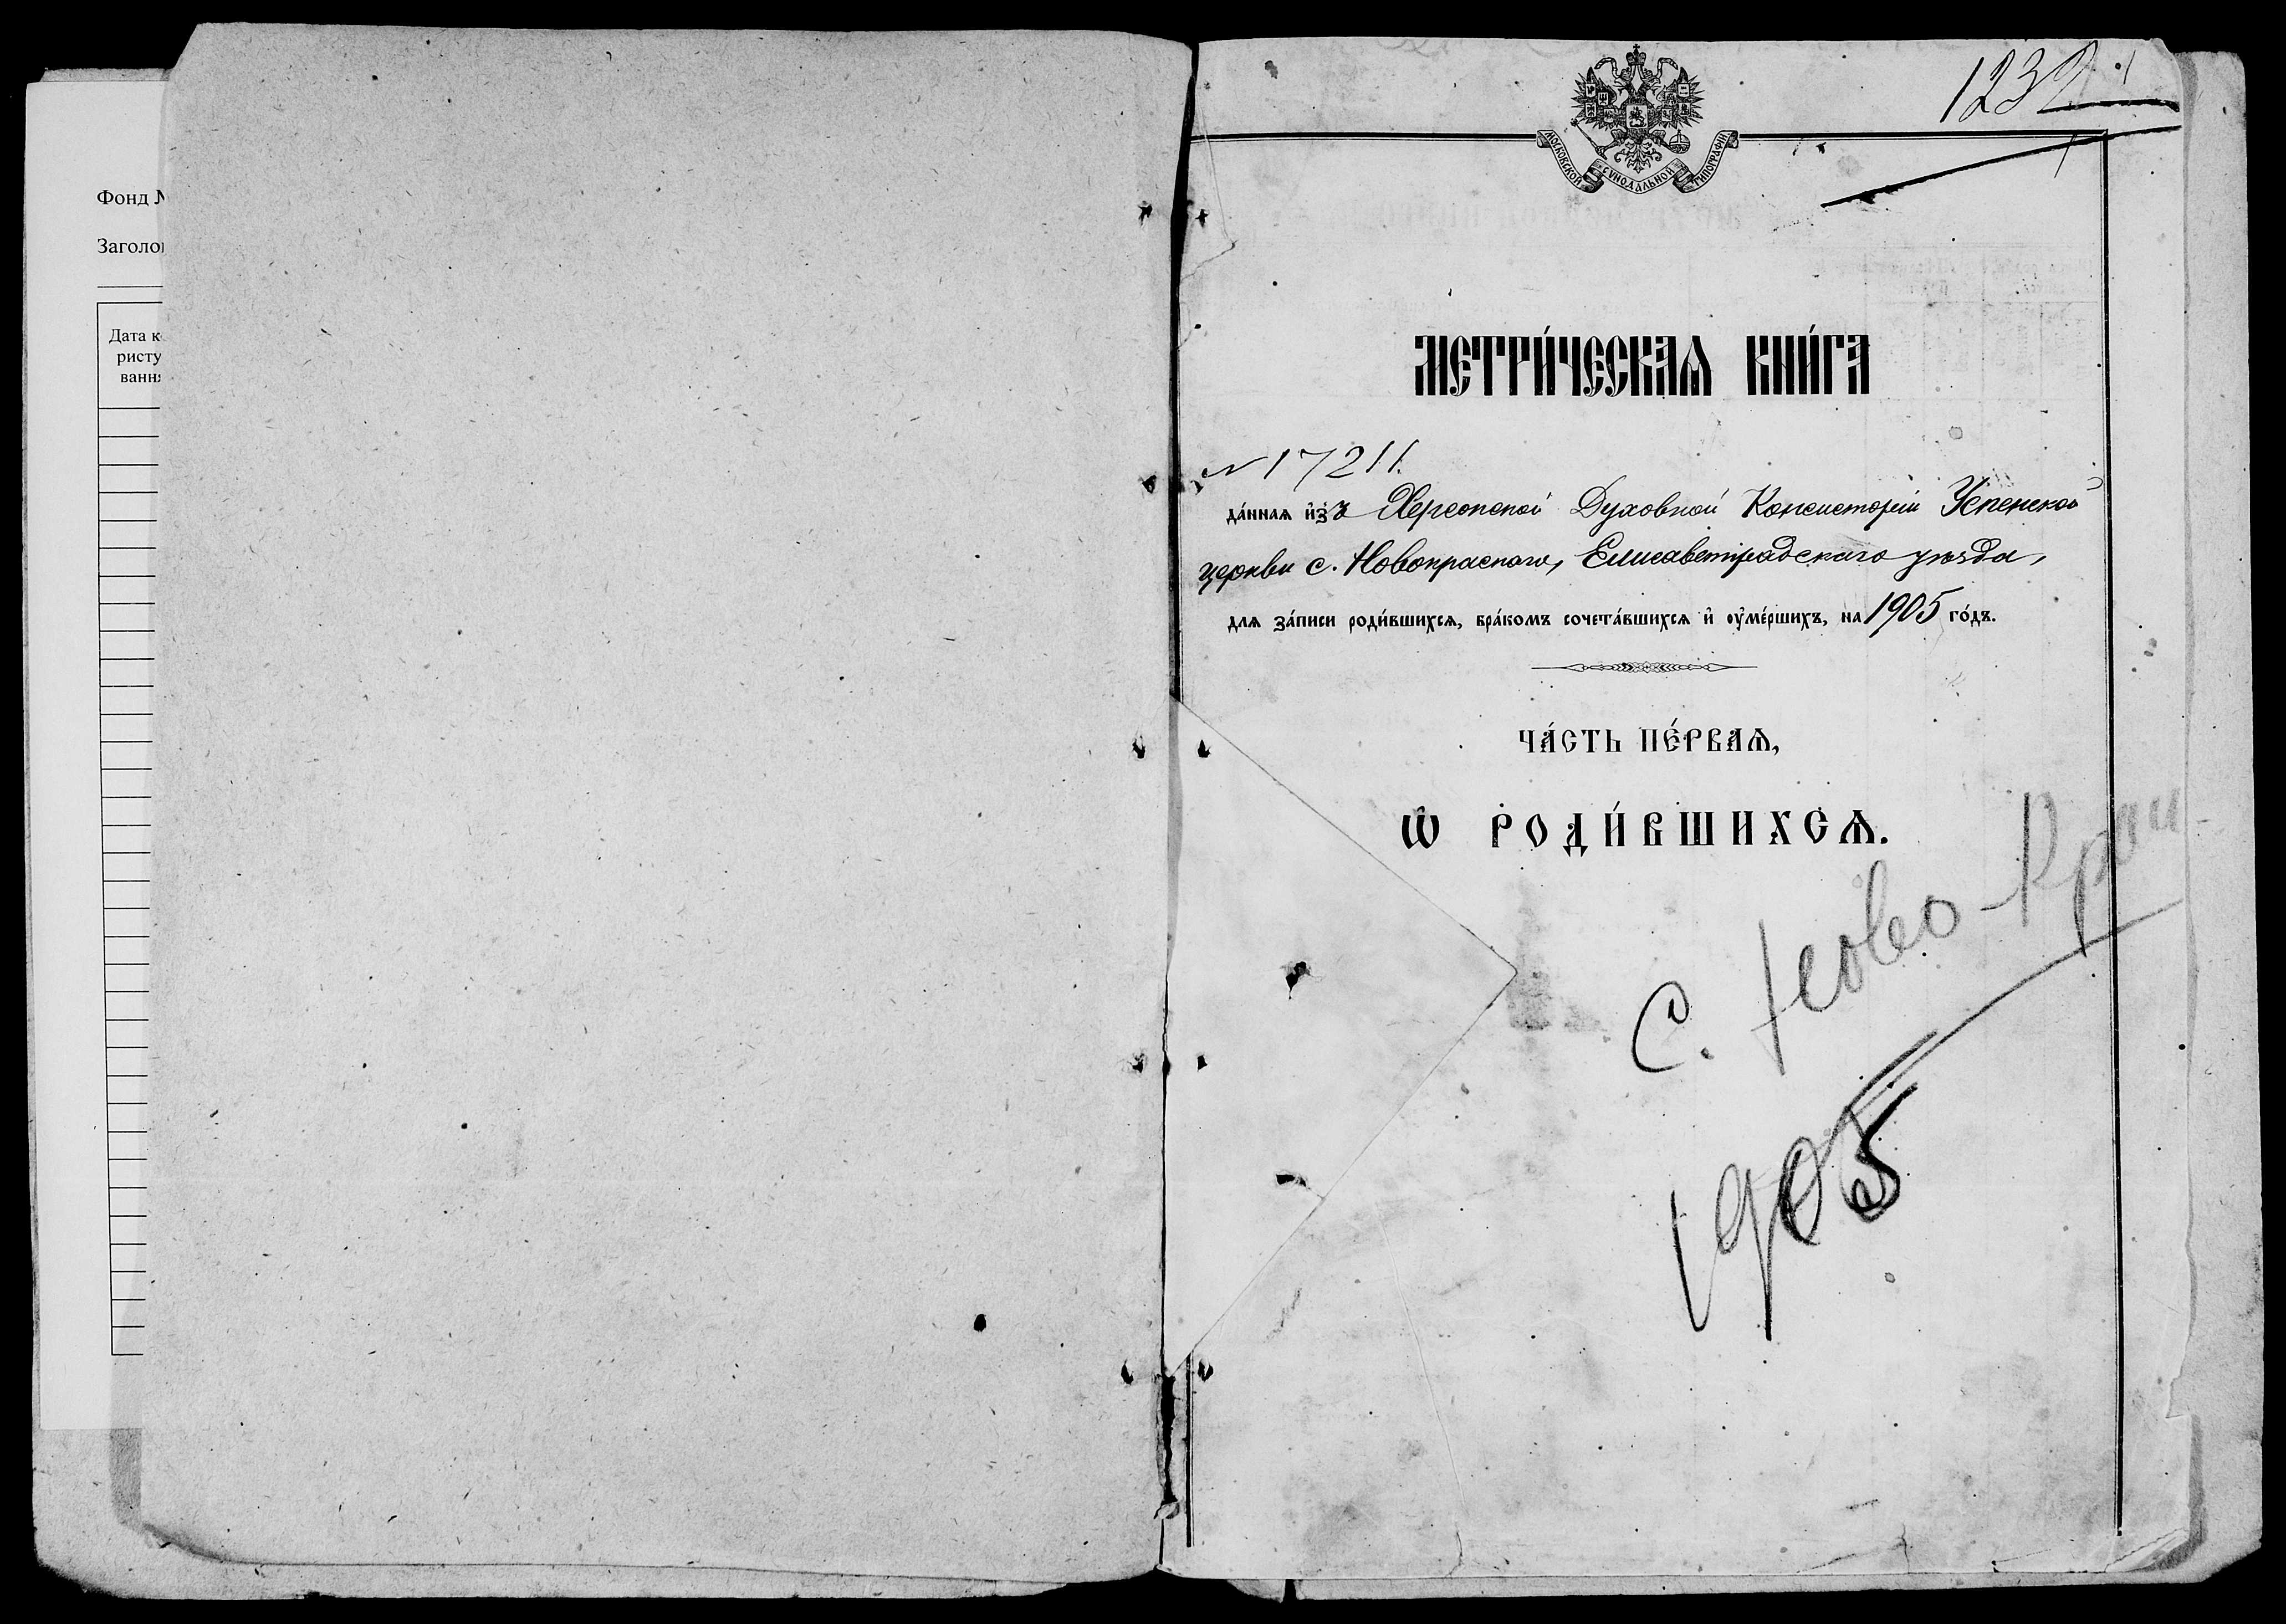 Фонд №
Заголо
Дата к
ристу
ванн
1232
МОСКОВСКОЙ СѴНОДАЛЬНОЙ ТИПОГРАФІИ
МЕТРИ́ЧЕСКАѦ КНИ́ГА
№ 17211.
да́ннаѧ и҆зъ Херсонской Духовной Консисторіи Успенской
церкви с. Новокраснаго, Елисаветградскаго уѣзда,
для за́писи роди́вшихсѧ, бра́комъ сочета́вшихсѧ и҆ оу҆ме́ршихъ, на 1905 го́дъ.
ЧА́СТЬ ПЕ́РВАѦ,
Ѡ҆ РОДИ́ВШИХСѦ.
с. Ново-Кра
1905